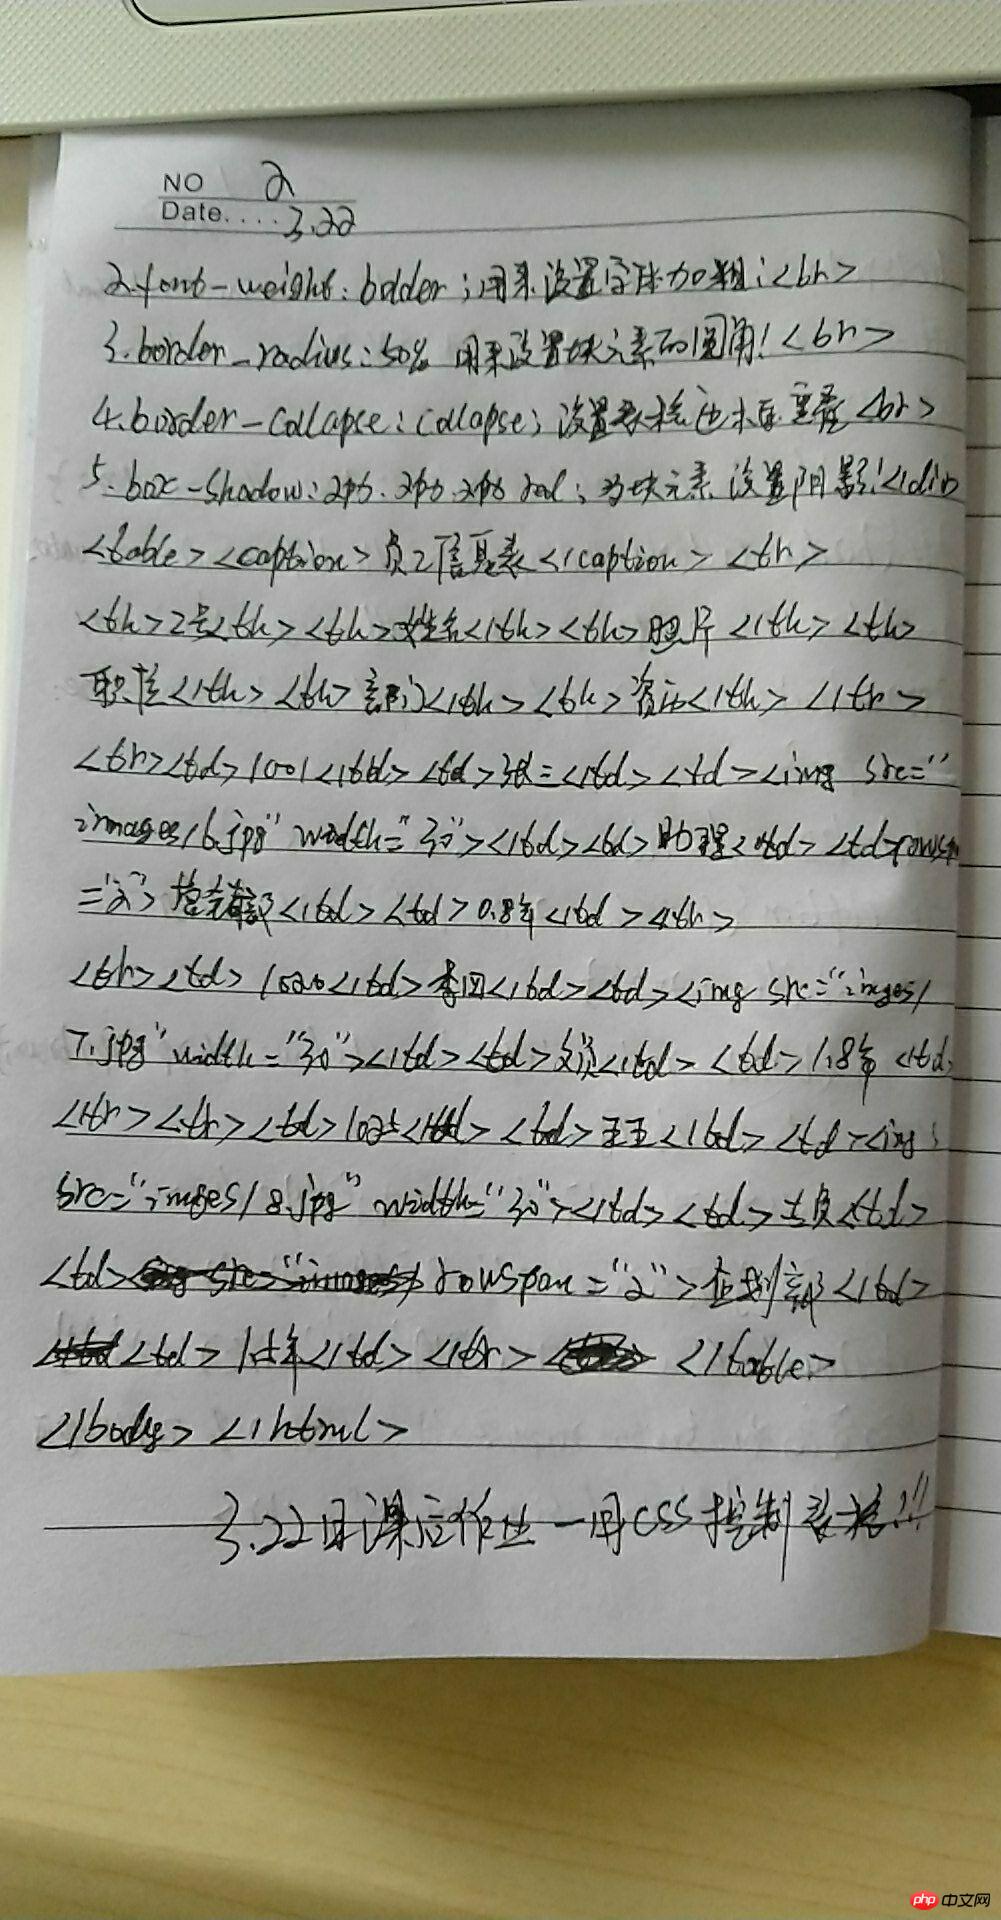 NO 2
Date.... 3.22
2.font-weight: bolder;用来设置字体加粗;<br>
3.border-radius:50% 用来设置块元素的圆角!<br>
4.border-collapse:collapse;设置表格边木匡重叠<br>
5.box-shadow:2px.2px.2px red;为块元素设置阴影!</div>
<table><caption>员工信息表</caption><tr>
<th>工号<th><th>姓名</th><th>照片</th><th>
职位</th><th>部门</th><th>资历</th></tr>
<tr><td>1001</td><td>张三</td><td><img src="
images/6.jpg" width="30"></td><td>助理</td><td rowspan
="2"></td><td>0.8年</td></tr>
<tr><td>1020</td>李四</td><td><img src="imges/
7.jpg" width="30"></td><td>文员</td><td>1.8年</td>
</tr><tr><td></td><td>王五</td><td><img
src="imges/8.jpg" width="30"></td><td>文员</td>
<td rowspan="2">企划部</td>
<td>年</td></tr></table>
</body></html>
3.22日课后作业一用CSS控制表格!!!
php中文网